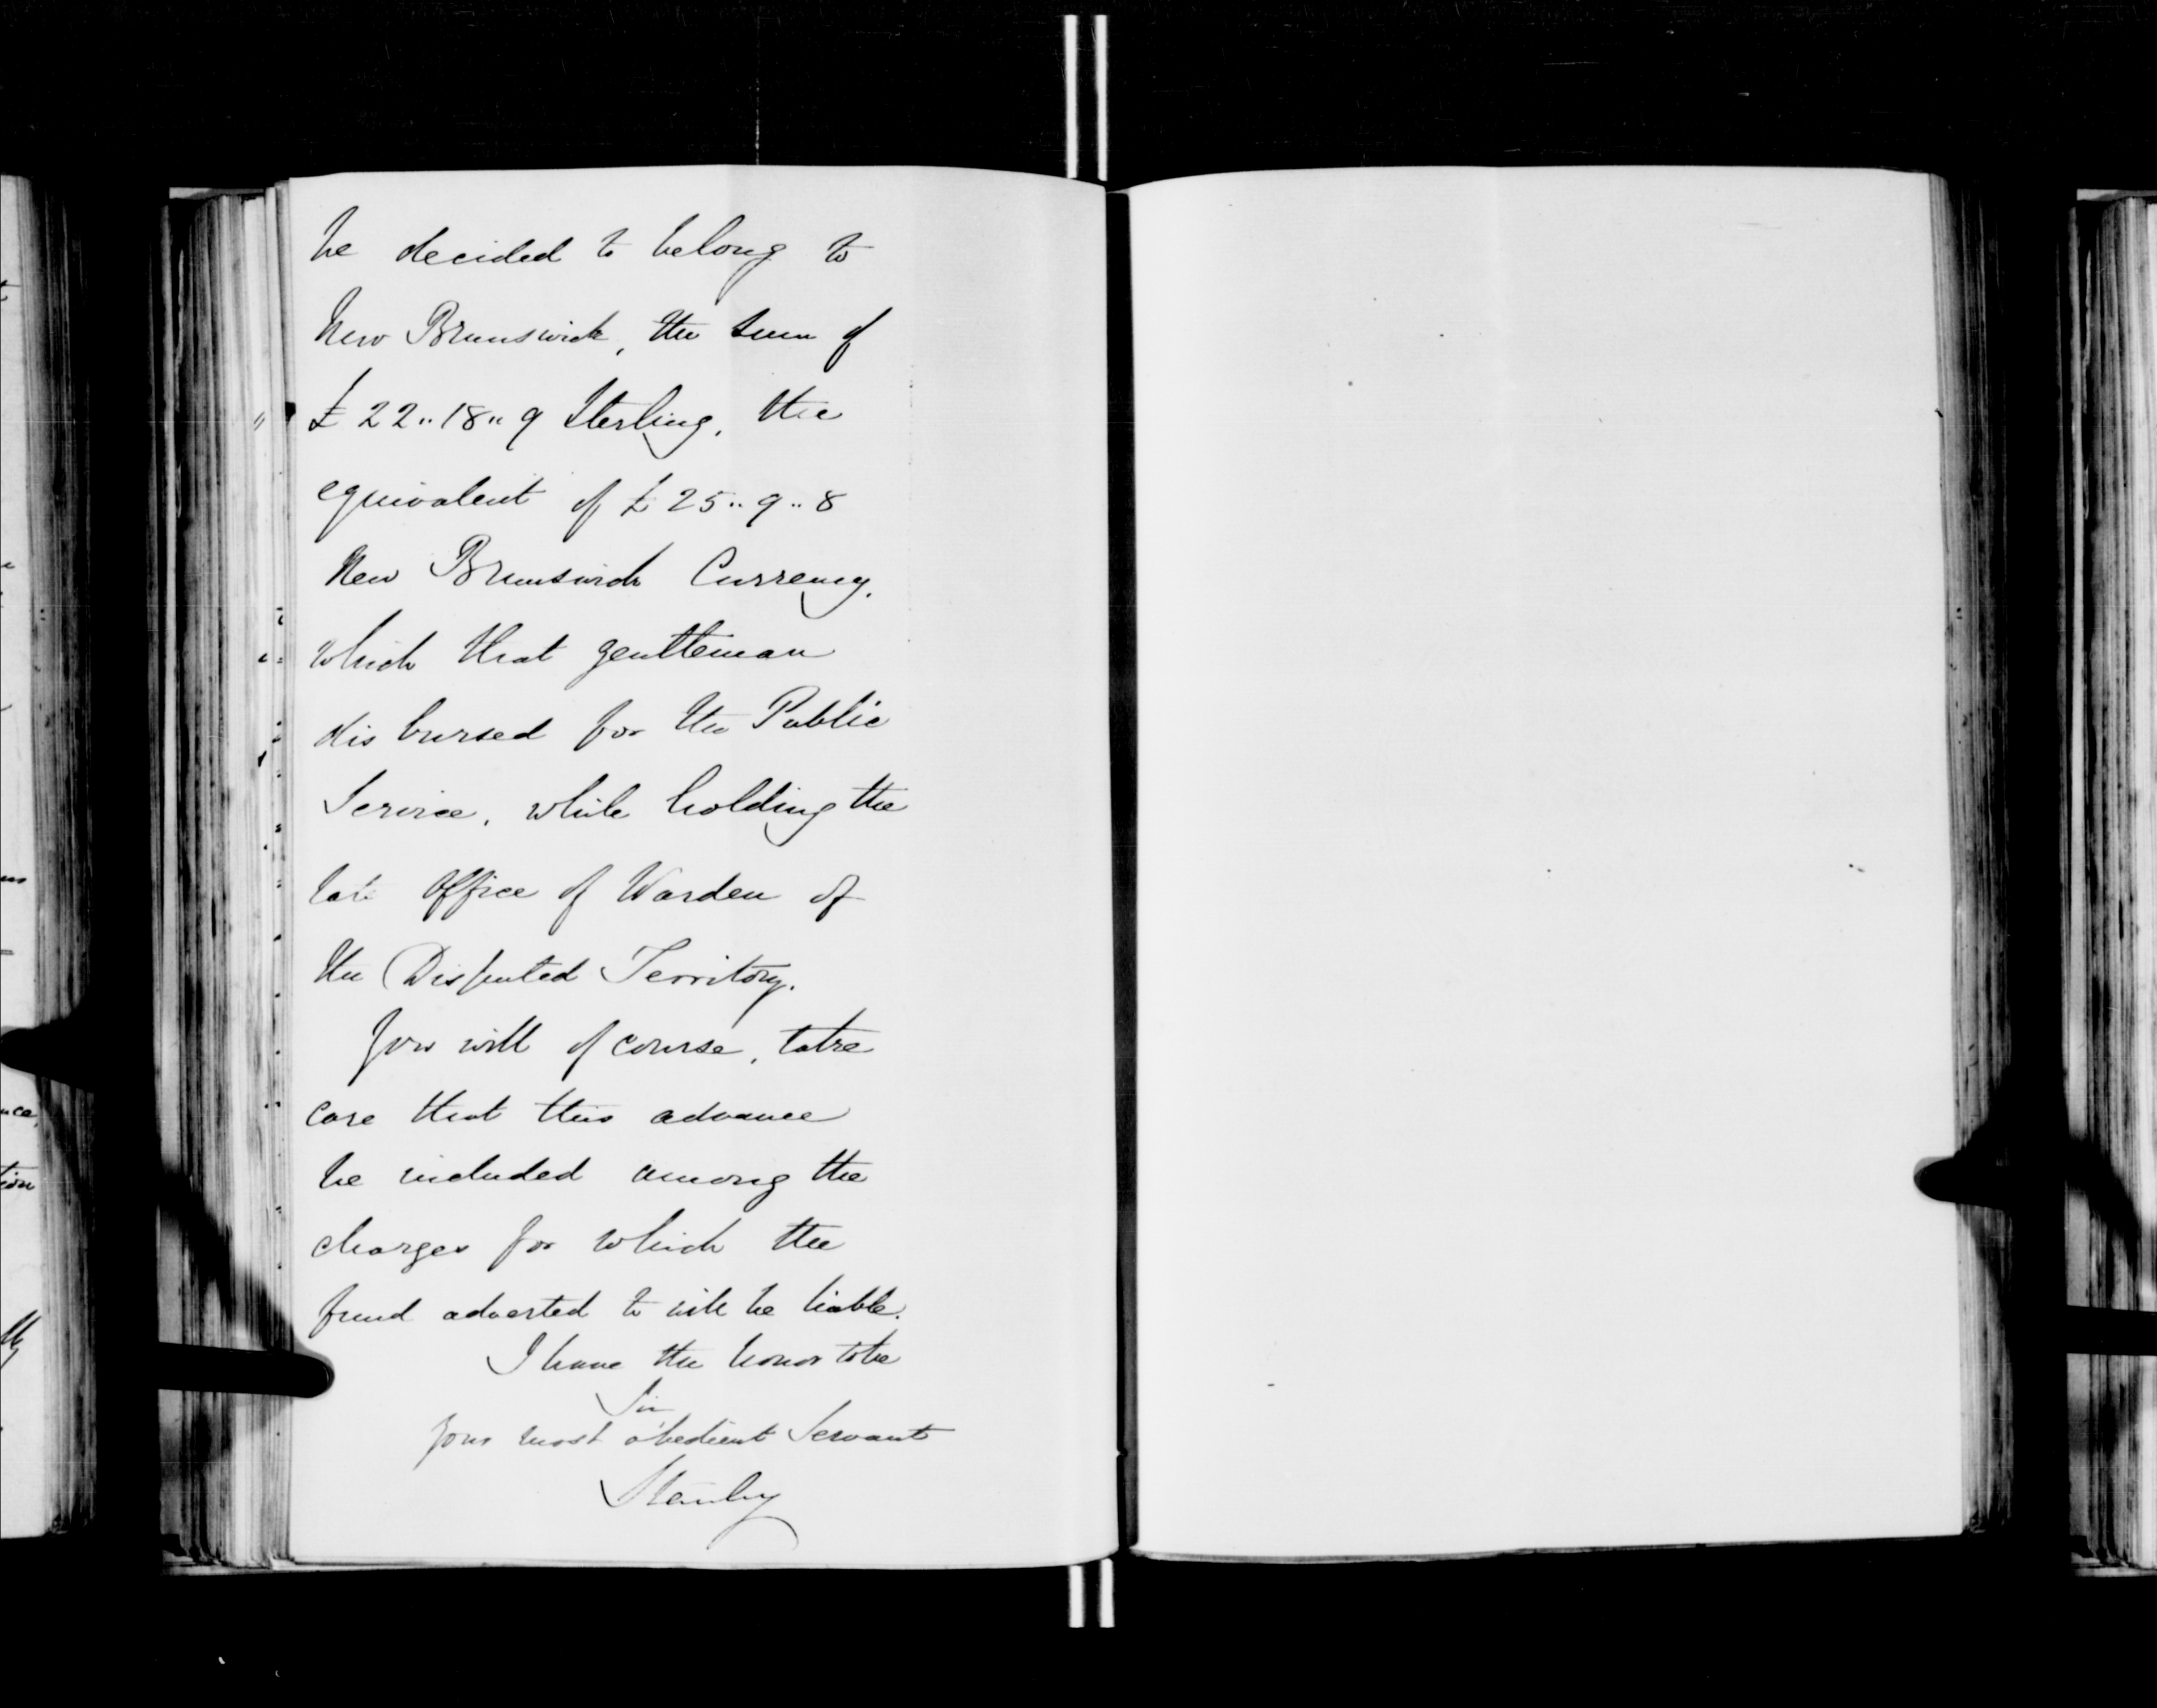 be decided to belong to
New Brunswick, the sum of
£22..18..9 Sterling, the
equivalent of £25..9..8
New Brunswick Currency,
which that gentleman
disbursed for the Public
Service, while holding the
late Office of Warden of
the Disputed Territory.
You will of course, take
care that this advance
be included among the
charges for which the
fund adverted to will be liable.
I have the honor to be
Sir
Your most obedient Servant
Stanley